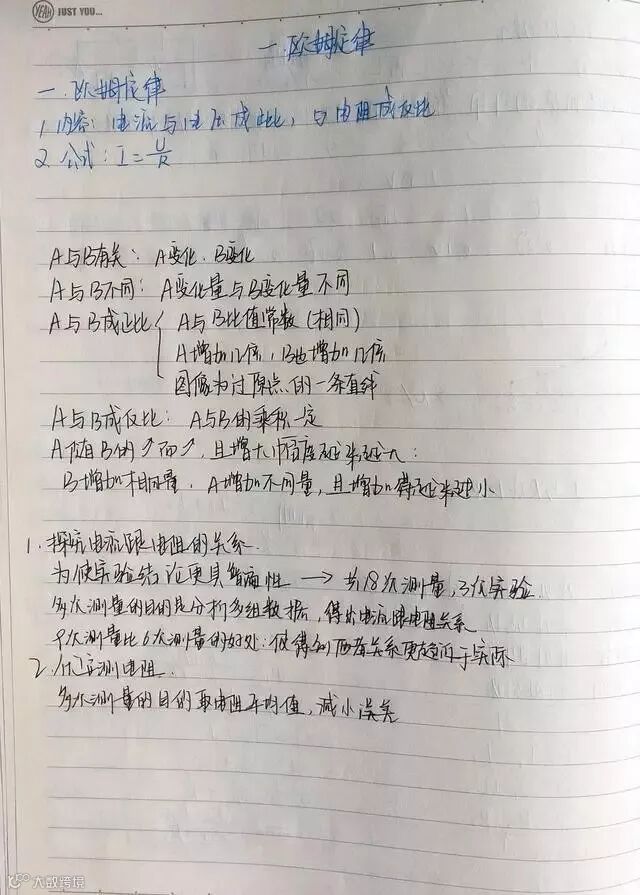 YEAH JUST YOU...
一.欧姆定律
一.欧姆定律
1.内容:电流与电压成正比,与电阻成反比
2.公式:I=U/R
A与B有关:A变化.B变化
A与B不同:A变化量与B变化量不同
A与B成正比{A与B比值常数(相同)
A增加几倍,B也增加几倍
图像为过原点的一条直线
A与B成反比:A与B的乘积一定
A随B的↗而↗,且增大幅度越来越大:
B增加相同量,A增加不同量,且增加得越来越小
1.探究电流跟电阻的关系.
为使实验结论更具普遍性→共18次测量,3次实验.
多次测量的目的是分析多组数据,得出电流跟电阻关系
9次测量比6次测量的好处:使得到两者关系更趋近于实际
2.伏安测电阻.
多次测量的目的取电阻平均值,减小误差
大数跨境